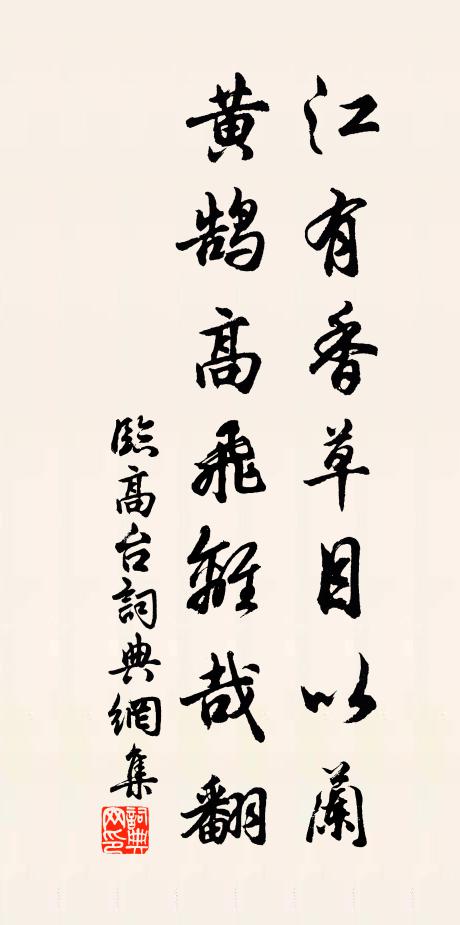 江有香草目以蘭
黃鵠高飛離哉翻
臨高台詞典網集
詞典
网印